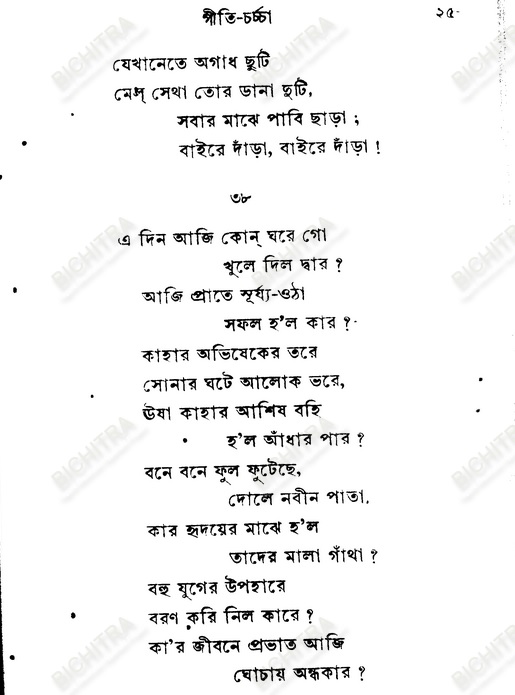 গীতি-চর্চ্চা ২৫
যেখানেতে অগাধ ছুটি
মেল্ সেথা তোর ডানা দুটি,
সবার মাঝে পাবি ছাড়া ;
বাইরে দাঁড়া, বাইরে দাঁড়া !
৩৮
এ দিন আজি কোন্ ঘরে গো
খুলে দিল দ্বার ?
আজি প্রাতে সূর্য্য-ওঠা
সফল হ'ল কার ?
কাহার অভিষেকের তরে
সোনার ঘটে আলোক ভরে,
ঊষা কাহার আশিষ বহি
হ'ল আঁধার পার ?
বনে বনে ফুল ফুটেছে,
দোলে নবীন পাতা,
কার হৃদয়ের মাঝে হ'ল
তাদের মালা গাঁথা ?
বহু যুগের উপহারে
বরণ করি নিল কারে ?
কা'র জীবনে প্রভাত আজি
ঘোচায় অন্ধকার ?
BICHITRA